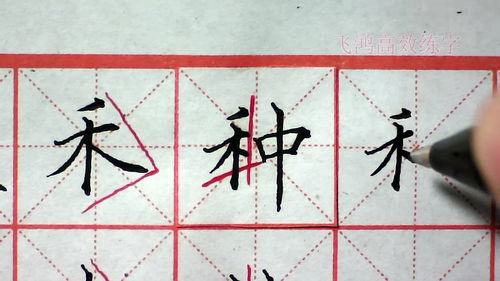 飞鸿高效练字
禾种禾